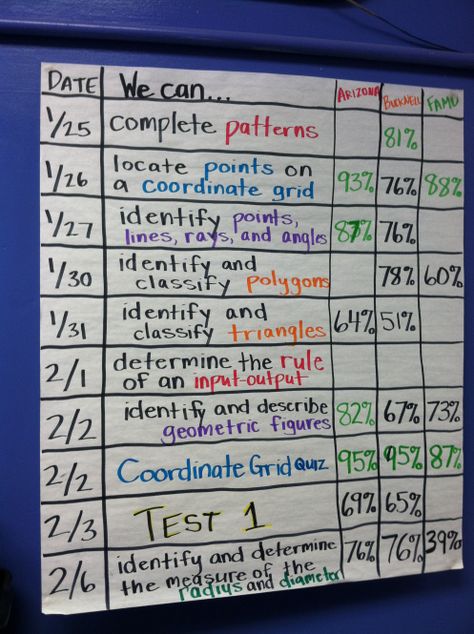 DATE We can... ARIZONA BUCKNELL FAMU
1/25 complete patterns 81%
locate points on
1/26 a coordinate grid 93% 76% 88%
identify points,
1/27 lines, rays, and angles 87% 76%
identify and
1/30 classify polygons 78% 60%
identify and
1/31 classify triangles 64% 51%
determine the rule
2/1 of an input-output
identify and describe
2/2 geometric figures 82% 67% 73%
2/2 Coordinate Grid Quiz 95% 95% 87%
2/3 TEST 1 69% 65%
identify and determine
2/6 the measure of the 76% 76% 39%
radius and diameter